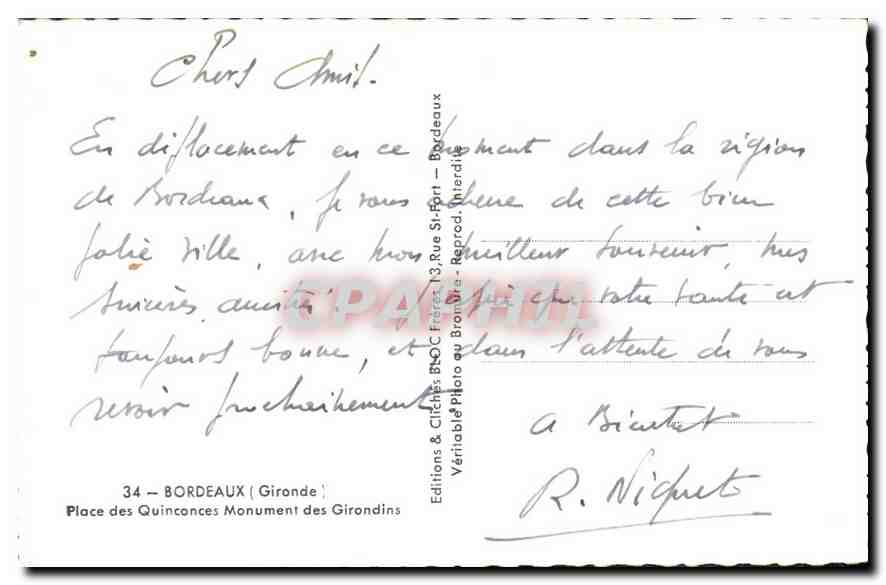 Chers Amis.
En déplacement en ce moment dans la région
de Bordeaux, je vous adresse de cette bien
jolie ville, avec mon meilleur souvenir, mes
sincères amitiés. J'espère que votre santé est
toujours bonne, et dans l'attente de vous
revoir prochainement
A Bientôt
R. Niquet
34 — BORDEAUX (Gironde)
Place des Quinconces Monument des Girondins
Editions & Clichés BLOC Frères, 13, Rue St-Fort — Bordeaux
Véritable Photo au Bromure - Reprod. Interdite
CPAPHIL